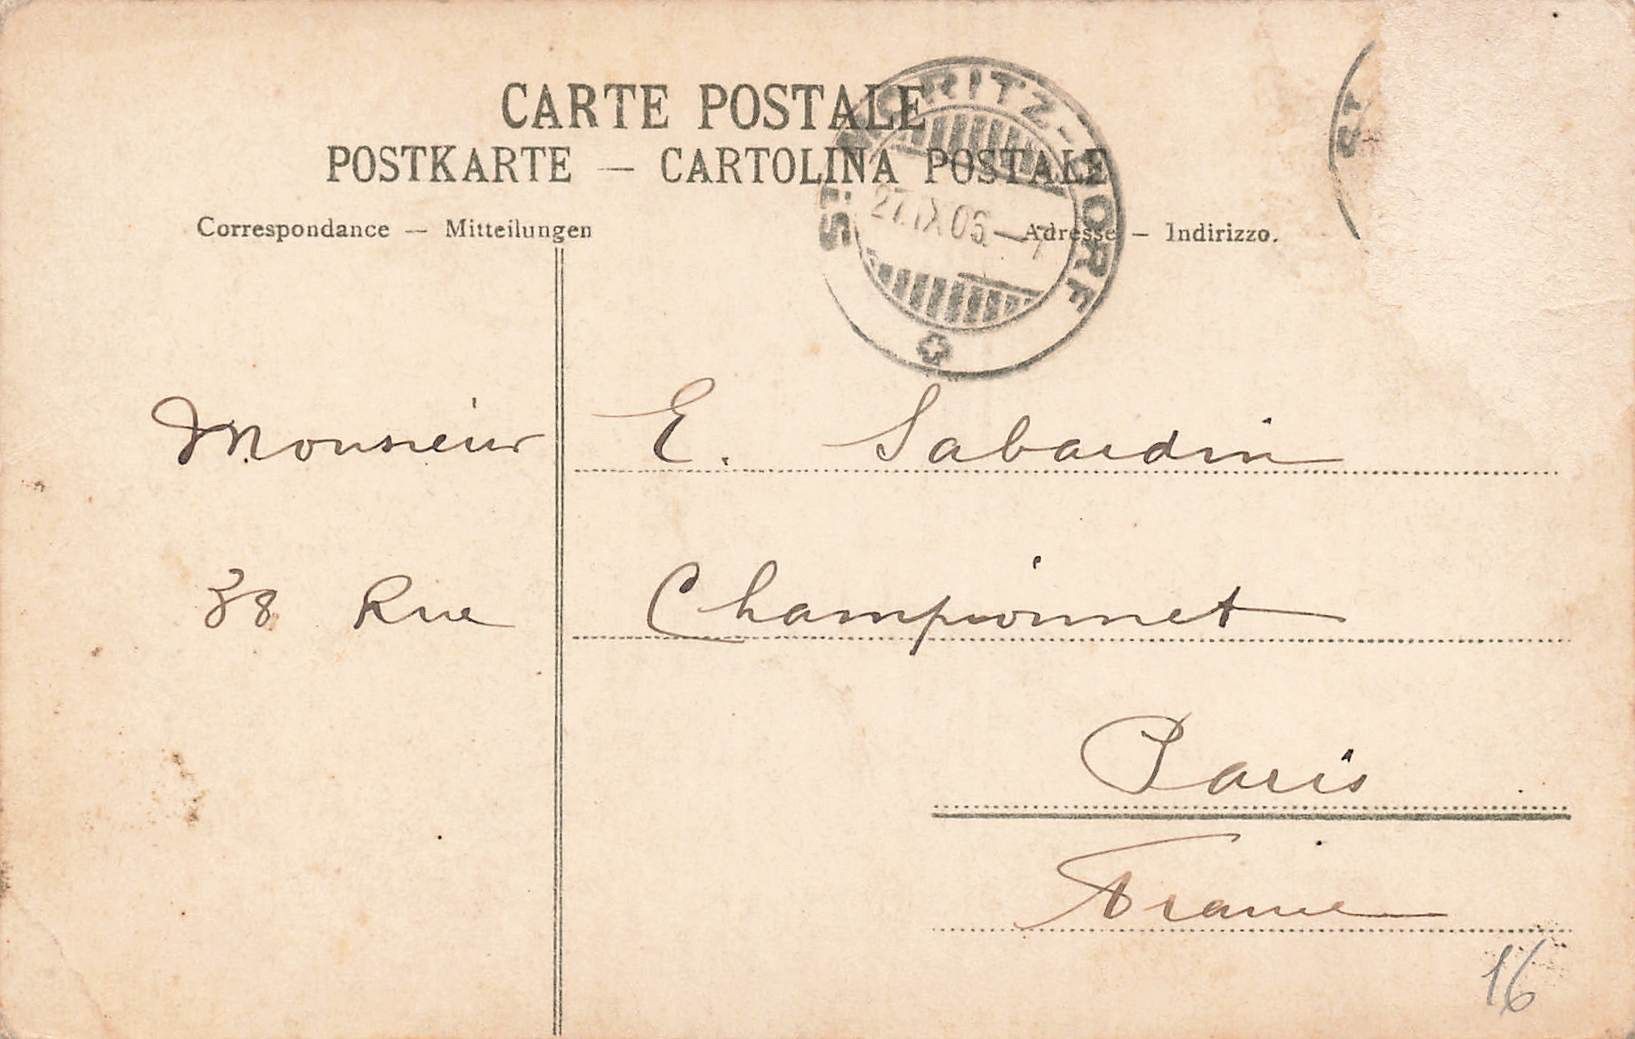 CARTE POSTALE
POSTKARTE — CARTOLINA POSTALE
Correspondance — Mitteilungen
Adresse — Indirizzo.
ST. MORITZ-DORF
27.IX.06.—
ST
Monsieur E. Sabardin
38 Rue Championnet
Paris
France
16